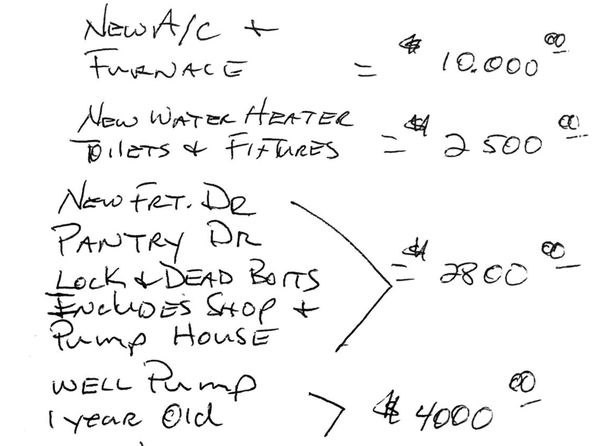 NEW A/C +
FURNACE = $ 10.000 00
NEW WATER HEATER
TOILETS & FIXTURES = $ 2500 00
NEW FRT. DR
PANTRY DR
LOCK & DEAD BOLTS = $ 2800 00
INCLUDES SHOP +
PUMP HOUSE
WELL PUMP
1 YEAR OLD > $ 4000 00